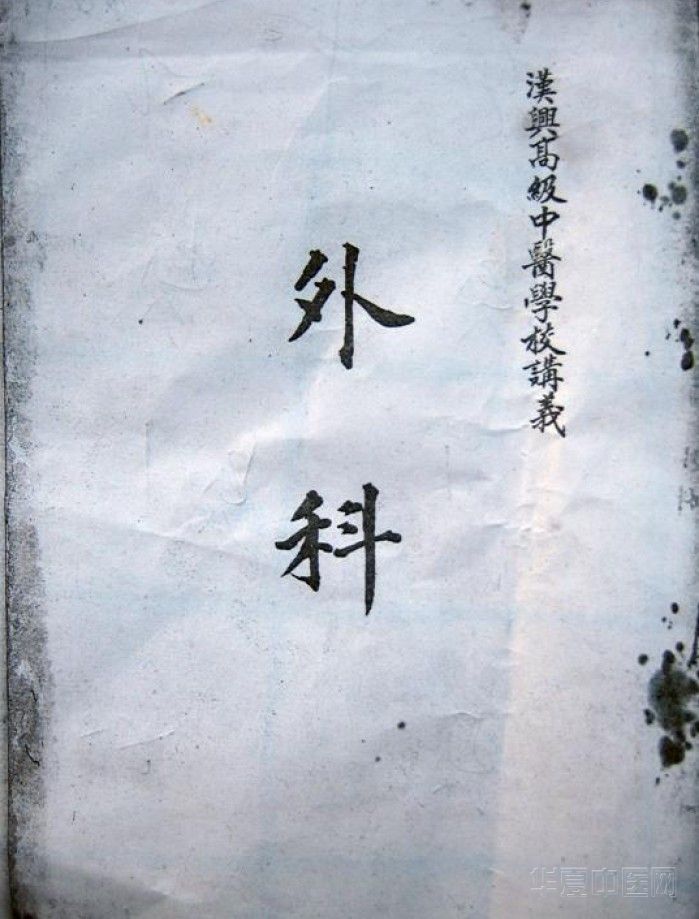 漢興高級中醫學校講義
外科
华夏中医网